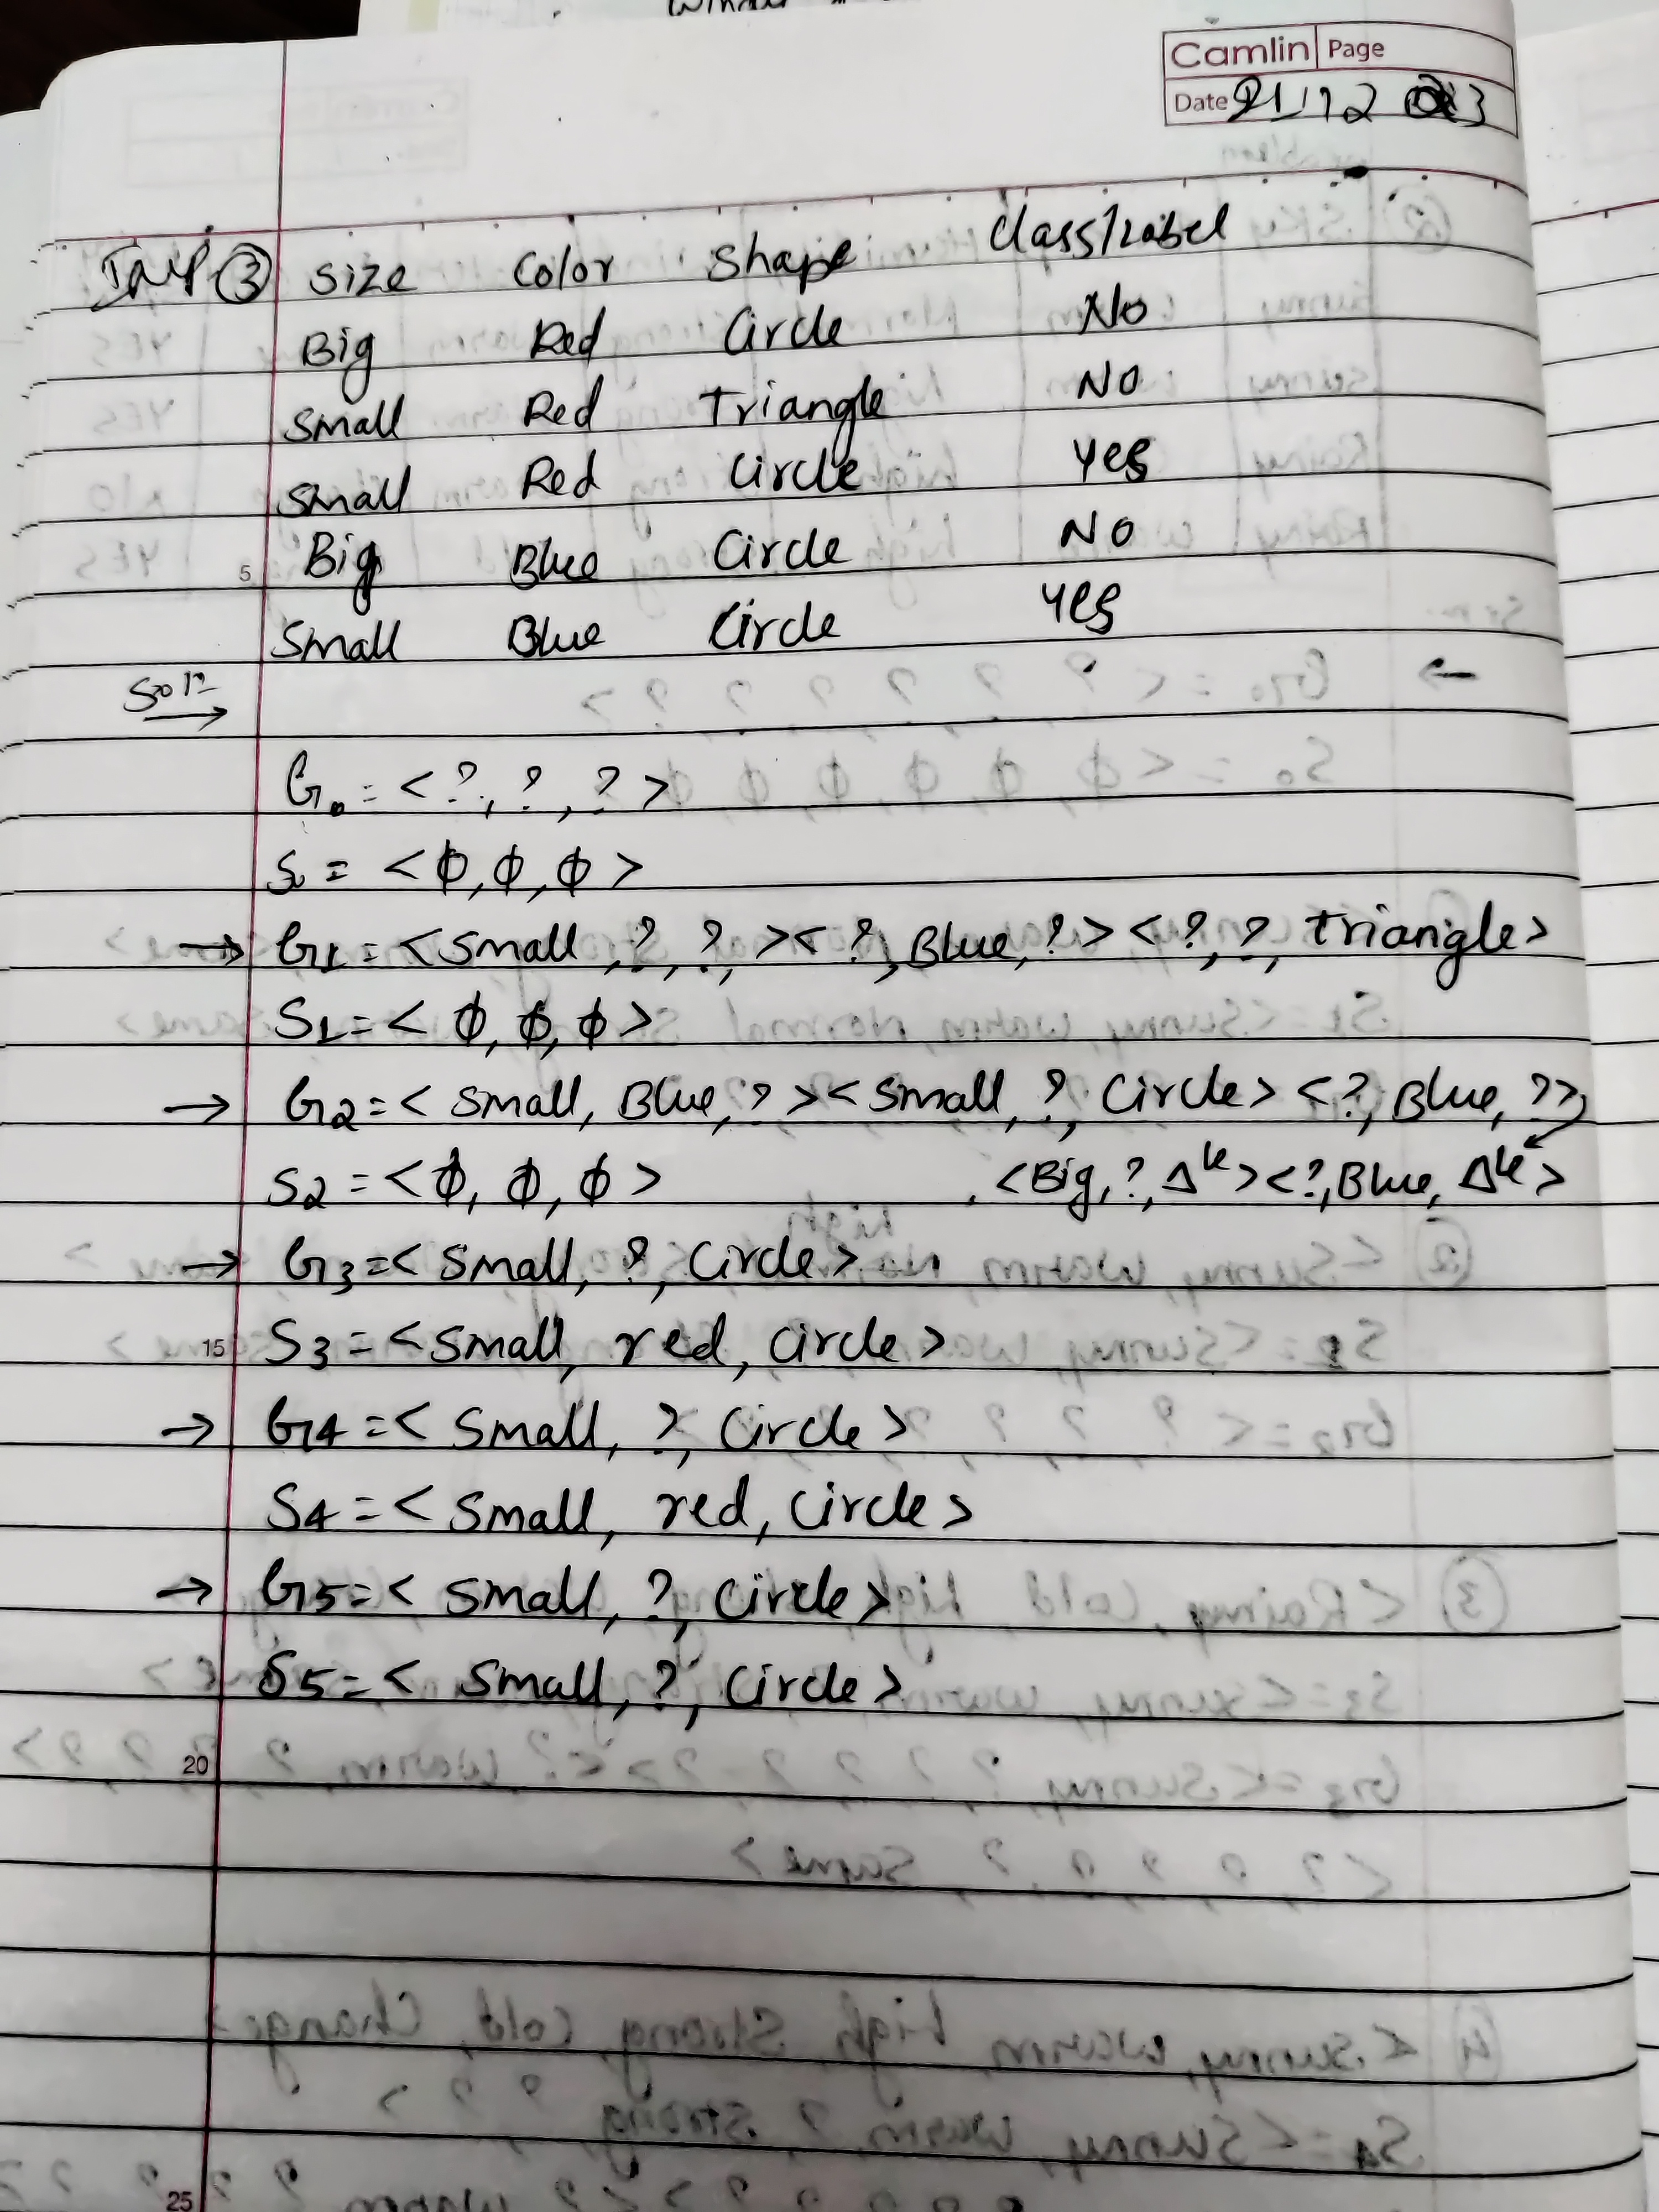 Camlin Page
Date 21/12
IMP ③ Size Color Shape Class/Label
Big Red Circle No
Small Red Triangle NO
Small Red Circle Yes
5 Big Blue Circle NO
Small Blue Circle Yes
Soln →
G₀ = <?, ?, ?>
S₀ = <ϕ, ϕ, ϕ>
→ G1 = <Small, ?, ?, > <?, Blue, ?> <?, ?, Triangle>
S1 = <ϕ, ϕ, ϕ>
→ G2 = <Small, Blue, ?> <Small, ?, Circle> <?, Blue, ?>
S2 = <ϕ, ϕ, ϕ> , <Big, ?, Δle> <?, Blue, Δle>
→ G3 = <Small, ?, Circle>
15 S3 = <Small, red, circle>
→ G4 = <Small, ?, Circle>
S4 = <Small, red, Circle>
→ G5 = <Small, ?, Circle>
S5 = <Small, ?, Circle>
20
25